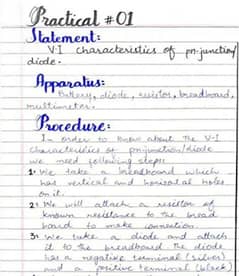 Practical #01
Statement:
V-I characteristics of pn-junction/
diode.
Apparatus:
Battery, diode, resistor, breadboard,
multimeter.
Procedure:
In order to know about the V-I
characteristics of pn-junction/diode
we need following steps
1• We take a breadboard which
has vertical and horizontal holes
on it.
2• We will attach a resistor of
known resistance to the bread
board to make connection.
3• We take a diode and attach
it to the breadboard the diode
has a negative terminal (silver)
and a positive terminal (black)